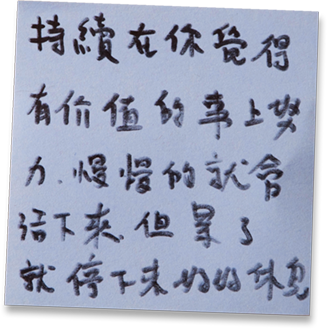 持續在你覺得
有价值的事上努
力.慢慢的就會
活下來 但累了
就停下来好好休息